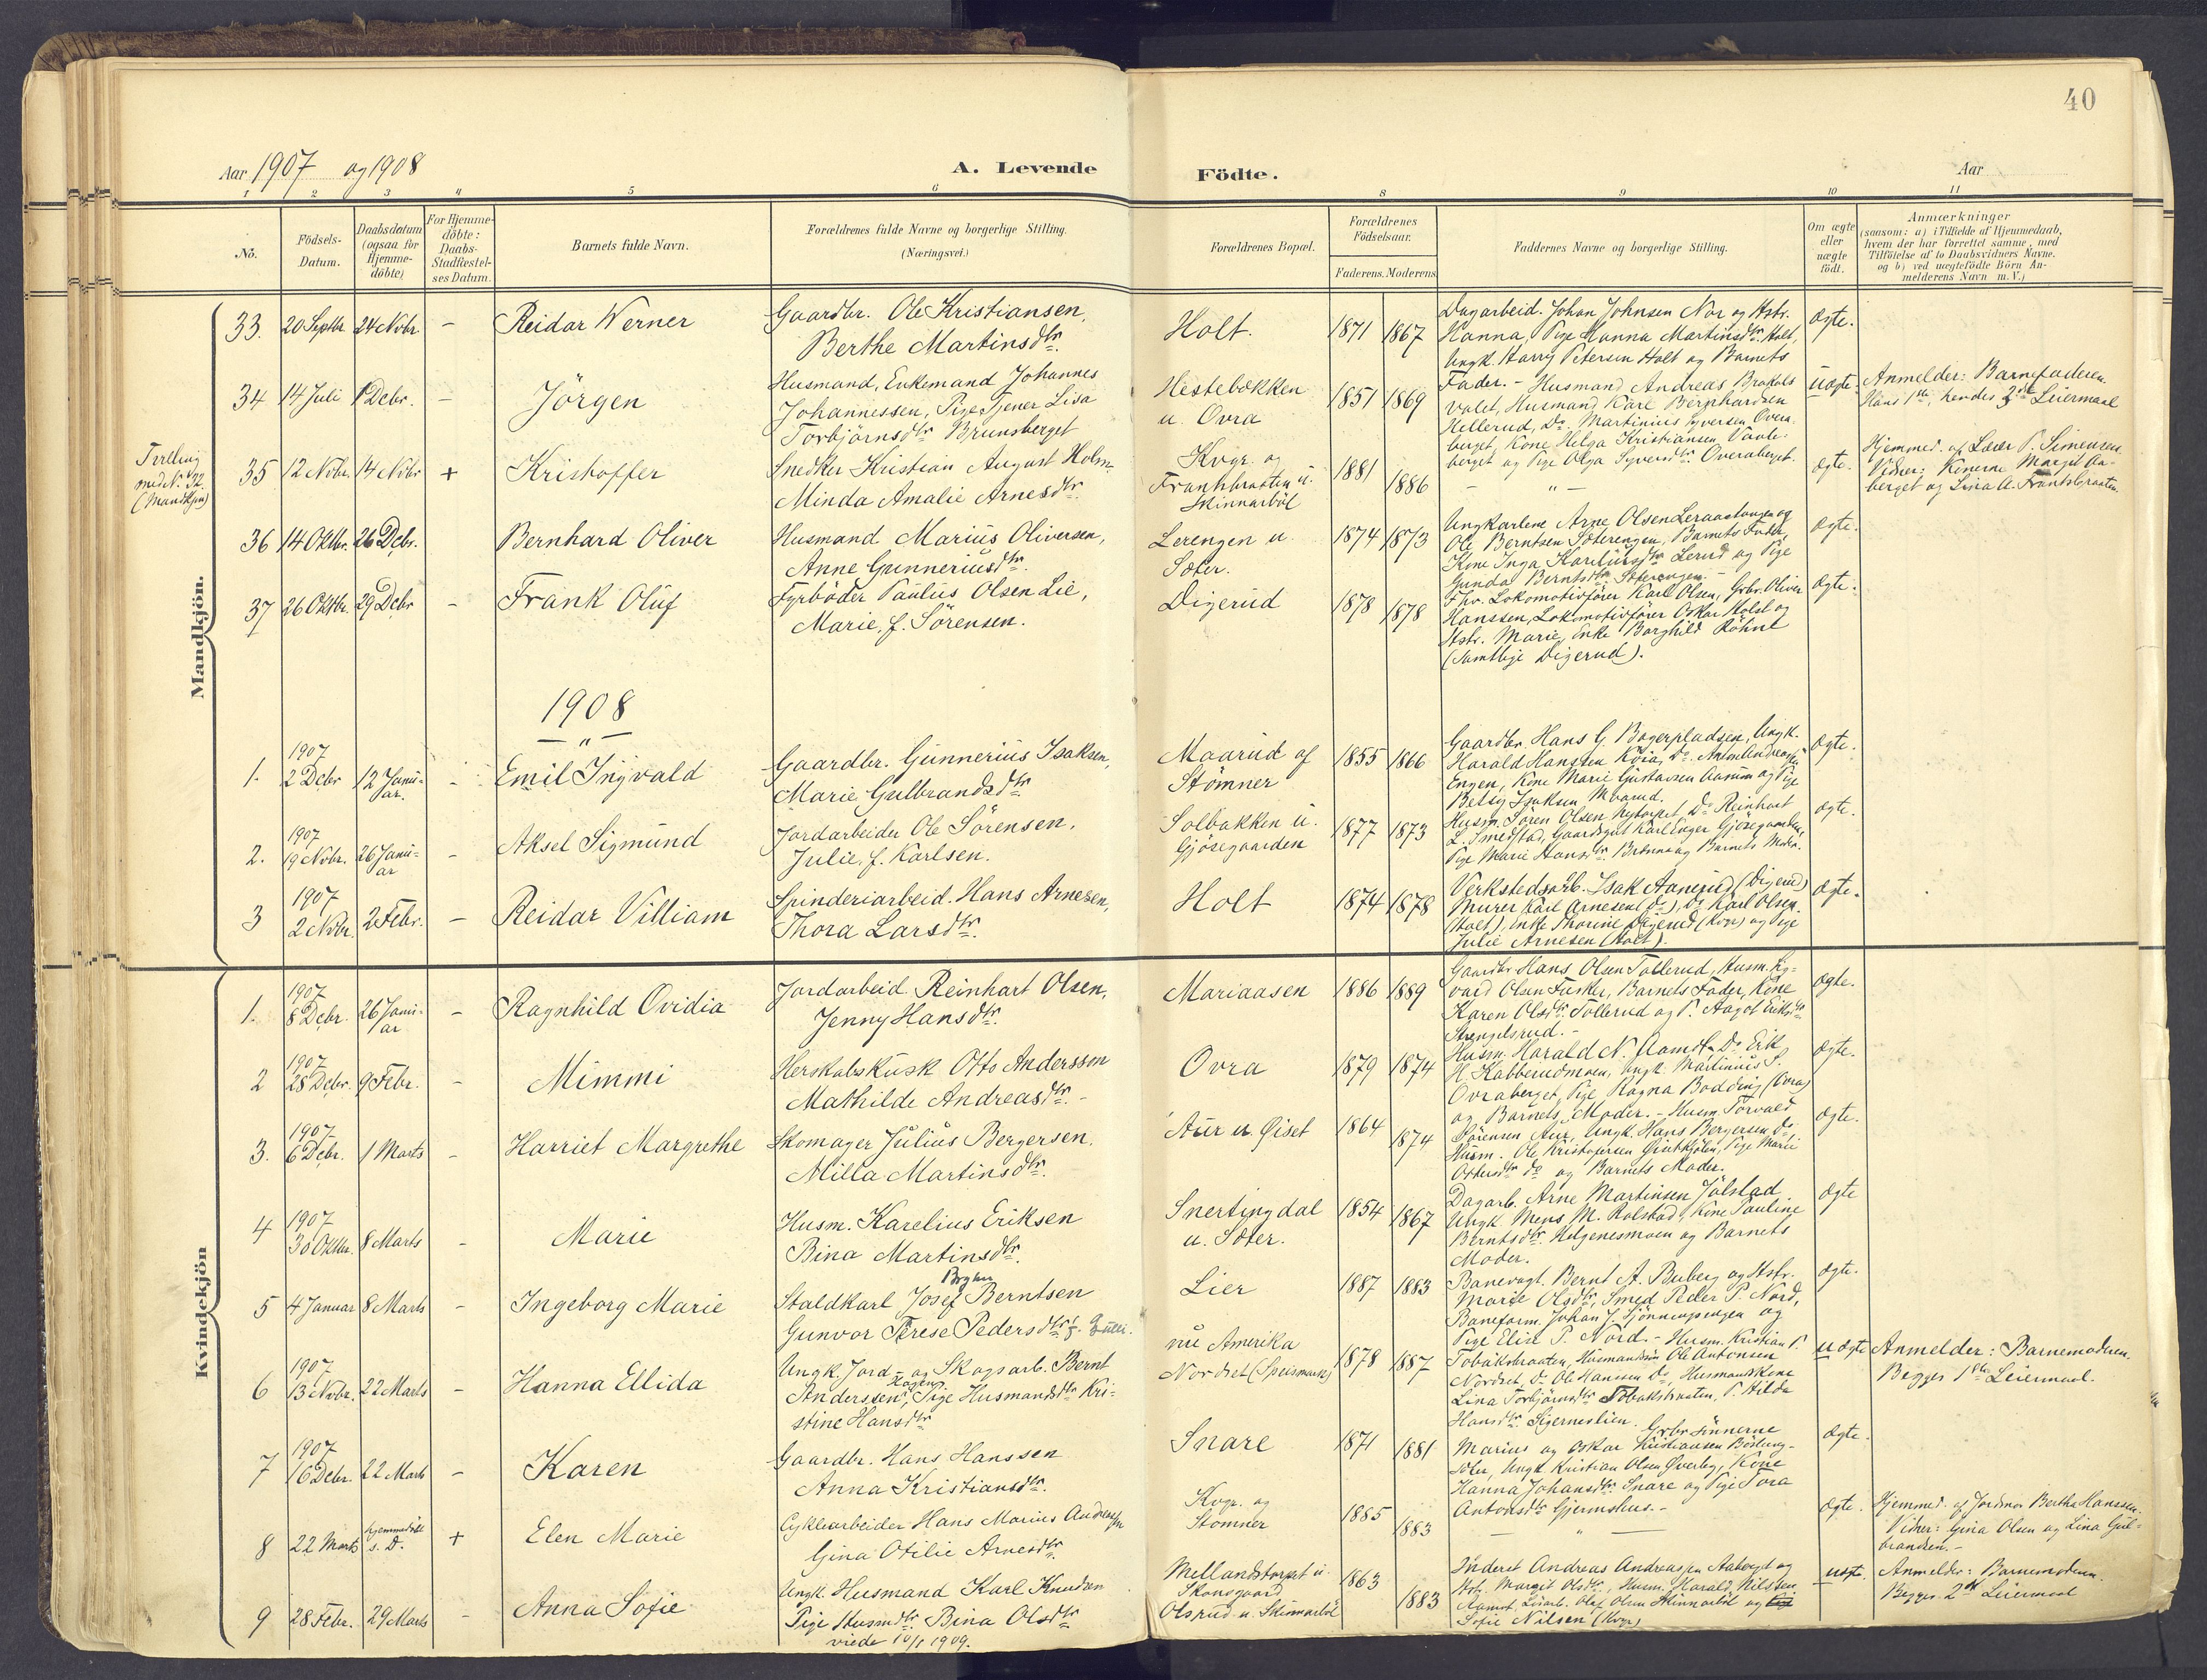 40
Aar 1907 og 1908
A. Levende Födte.
Aar
1 2 3 4 5 6 8 9 10 11
No.
Födsels-Datum.
Daabsdatum (ogsaa for Hjemmedöbte)
For Hjemmedöbte: Daabs-Stadfestelses Datum.
Barnets fulde Navn.
Forældrenes fulde Navne og borgerlige Stilling. (Næringsvei.)
Forældrenes Bopæl.
Forældrenes Födselsaar.
Faderens. Moderens.
Faddernes Navne og borgerlige Stilling.
Om ægte eller uægte födt.
Anmærkninger
(saasom: a) i Tilfælde af Hjemmedaab,
hvem der har forrettet samme, med
Tilföielse af to Daabsvidners Navne.
og b) ved uægtefödte Börn Anmelderens Navn m.V.)
Mandkjön.
33. 20 Septbr. 24 Novbr. - Reidar Werner
Gaardbr. Ole Kristiansen,
Berthe Martinsdtr.
Holt. 1871 1867
Dagarbeid. Johan Johnsen Nor og Hstr.
Hanna, Pige Hanna Martinsdtr. Holt,
Ungk. Harry Petersen Holt og Barnets
Fader. -
Ægte.
34 14 Juli 1 Debr. - Jörgen
Husmand, Enkemand Johannes
Johannessen, Pige Tjener Lisa
Torbjörnsdtr Brunsberget
Hestebækken
u. Ovra
1851 1869
Husmand Andreas
valet, Husmand Karl Bernhardsen
Hellerud, Do. Martinius Syversen Overaberget, Kone Helga Kristiansen
berget og Pige Olga Syversdtr. Overaberget.
uægte.
Anmelder: Barnefaderen.
Hans 1ste, hendes 2det Leiermaal
Tvilling
med No. 32
(Mandkjøn)
35 12 Novbr. 14 Novbr + Kristoffer
Snedker Kristian August Holm
Minda Amalie Arnesdtr.
Kvgr. og
Frantsbraaten u.
Skinnarböl
1881 1886
- " -
Ægte.
Hjemmed. af Lærer P. Simensen.
Vidner: Konerne Margit Aaberget og Lina A. Frantsbraaten.
36 14 Oktbr. 26 Debr. Bernhard Oliver
Husmand Marius Oliversen,
Anne Gunneriusdtr.
Lerengen u.
Sæter.
1874 1873
Ungkarlene Arne Olsen og
Ole Berntsen Sæterengen, Barnets Fader,
Kone Inga Kareliusdtr Lerud og Pige
Gunda Berntsdtr. Sæterengen. -
Ægte.
37 26 Oktbr. 29 Debr - Frank Oluf
Fyrböder Paulus Olsen Lie,
Marie, f. Sörensen.
Digerud 1878 1878
Fhv. Lokomotivförer Karl Olsen, Grbr. Oliver
Hanssen, Lokomotivförer Oskar Holst og
Hstr. Marie, Enke Borghild Röhne
(samtlige Digerud).
Ægte.
1908
- " -
1. 1907 2 Debr 12 Januar. - Emil Ingvald
Gaardbr. Gunnerius Isaksen,
Marie Gulbrandsdtr
Maarud af
Stömner
1855 1866
Gaardbr. Hans G. Bogerpladsen, Ungk.
Harald Hanssen Köia, Do. Anton Andreassen
Engen, Kone Marie Gustavsen Aamun og Pige
Betsy Isaksen Maarud.
Ægte.
2. 1907 19 Novbr. 26 Januar - Aksel Sigmund
Jordarbeider Ole Sörensen,
Julie, f. Karlsen.
Solbakken u.
Gjösegaarden
1877 1873
Husm. Sören Olsen Nytorpet, Do Reinhart
L. Smedstad, Gaardsgut Karl Enger Gjösegaarden,
Pige Marie Hansdtr. Brænna og Barnets Moder.
Ægte.
3 1907 2 Novbr. 2 Febr. - Reidar Villiam
Spinderiarbeid. Hans Arnesen,
Thora Larsdtr.
Holt 1874 1878
Verkstedsarb. Isak Aanerud (Digerud)
Murer Karl Arnesen (do), Do Karl Olsen
(Holt), Enke Thorine Digerud (Kvgr) og Pige
Julie Arnesen (Holt).
Ægte.
Kvindekjön
1. 1907 8 Debr. 26 Januar - Ragnhild Ovidia
Jordarbeid. Reinhart Olsen,
Jenny Hansdtr.
Mariaasen 1886 1889
Gaardbr Hans Olsen Tollerud, Husm. Edvard Olsen Fasker, Barnets Fader, Kone
Karen Olsdtr. Tollerud og P. Aagot Eriksdtr
Strengelsrud. -
Ægte.
2 1907 28 Debr. 9 Febr. - Mimmi
Herskabskusk Otto Andersson
Mathilde Andreasdtr. -
Ovra 1879 1874
Husm. Harald N. Aamot, Do Erik
H. Kabberudmoen, Ungk. Martinius S.
Ovraberget, Pige Ragna Bodding (Ovra)
og Barnets Moder. -
Ægte.
3. 1907 6 Debr. 1 Marts - Harriet Margrethe
Skomager Julius Bergersen,
Milla Martinsdtr.
Aur u. Øiset 1864 1874
Husm. Torvald
Sörensen Aur, Ungk. Hans Bergersen do,
Husm. Ole Kristofersen Øisetkjölen, Pige Marie
Ottersdtr do og Barnets Moder.
Ægte.
4 1907 30 Oktbr. 8 Marts - Marie
Husm. Karelius Eriksen
Bina Martinsdtr.
Snertingdal
u. Sæter.
1854 1867
Dagarb. Arne Martinsen Jölstad,
Ungk Mens M. Rolstad, Kone Pauline
Berntsdtr. Helgenesmoen og Barnets
Moder.
Ægte
5 4 Januar 8 Marts - Ingeborg Marie
Staldkarl Josef Berntsen
Gunvor Terese Pedersdtr f.
Lier 1887 1883
Banevogt. Bernt A. Buberg og Hstr.
Marie Olsdtr, Smed Peder P. Nord,
Baneform. Johan J. og
Pige Elise P. Nord. -
Ægte.
6 1907 13 Novbr. 22 Marts - Hanna Ellida
Ungk. Jord- og Skogsarb. Bernt
Anderssen, Pige Husmandsdtr Kristine Hansdtr
nu Amerika
Nordset
1878 1887
Husm. Kristian P.
Tobaksbraaten, Husmandssön Ole Antonsen
Nordset, Do Ole Hansen Do, Husmandskone
Lina Torbjörnsdtr Tobaksbraaten, P. Hilda
Hansdtr. Sigerneslien.
uægte
Anmelder: Barnemoderen.
Begges 1ste Leiermaal.
7 1907 16 Debr. 22 Marts - Karen
Gaardbr. Hans Hanssen
Anna Kristiansdtr.
Snare 1871 1881
Grbr.sönnerne
Marius og Oskar Kristiansen Böslungsæter, Ungk. Kristian Olsen Øverby, Kone
Hanna Johansdtr. Snare og Pige Tora
Antonsdtr Gjermshus. -
Ægte.
8 22 Marts hjemmedöbt s. D. + Elen Marie
Cyklearbeider Hans Marius Andreassen
Gina Otilie Arnesdtr.
Kvgr. og
Stömner
1885 1883
- " -
Ægte.
Hjemmed. af Jordmor Berthe Hanssen.
Vidner: Gina Olsen og Lina Gulbrandsen. -
9 28 Febr. 29 Marts - Anna Sofie
Ungk. Husmand Karl Knudsen
Pige Husmdtr. Bina Olsdtr
viede 10/1 1909.
Mellandstorpet u.
Skansgaard
Olsrud u. Skinnarböl
1863 1883
Inderst Andreas Andreassen Aabergd og
Hstr. Margit Olsdtr., Husm. Harald Nilssen
Aamot, Olaf Olsen Skinnarböl og
Sofie Nilsen (Kvgr)
uægte.
Anmelder: Barnemoderen.
Begges 2det Leiermaal